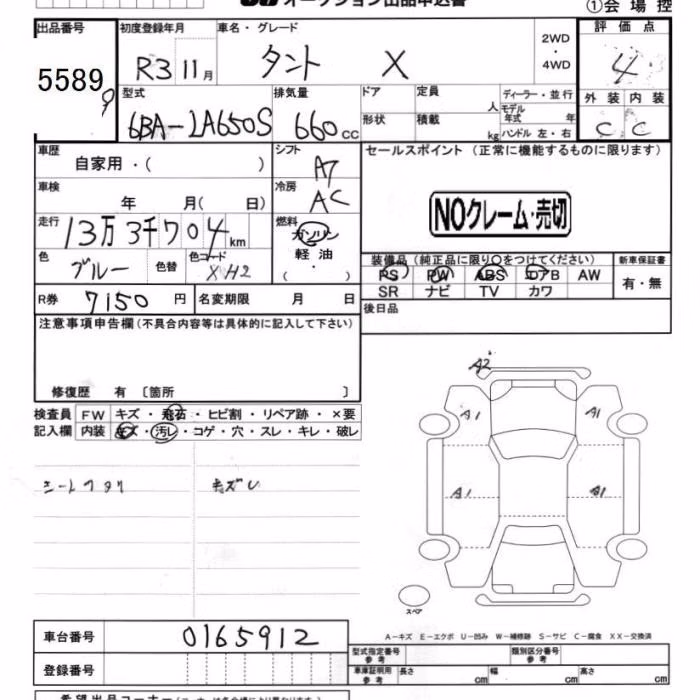 オークション出品申込書
①会場控
出品番号 初度登録年月 車名・グレード 2WD・4WD 評価点
5589 R3 11月 タント X 4
型式 排気量 ドア 定員 人 ディーラー・並行 外装 内装
モデル年式 年
6BA-LA650S 660cc 形状 積載 kg ハンドル 左・右 C C
車歴 自家用・( ) シフト A7 セールスポイント (正常に機能するものに限ります)
車検 年 月( 日) 冷房 AC NOクレーム・売切
走行 13万3千704km 燃料 ガソリン
軽油
( ・ )
色 ブルー 色替 色コード XH2
装備品 (純正品に限り○をつけてください) 新車保証書
PS PW ABS エアB AW 有・無
SR ナビ TV カワ
R券 7150円 名変期限 月 日 後日品
注意事項申告欄(不具合内容等は具体的に記入して下さい)
修復歴 有 〔箇所 〕
検査員 FW キズ・飛石・ヒビ割・リペア跡・×要
記入欄 内装 キズ・汚レ・コゲ・穴・スレ・キレ・破レ
A2
A1 A1
キズ
A1 A1
スペア
A-キズ E-エクボ U-凹み W-補修跡 S-サビ C-腐食 XX-交換済
車台番号 0165912
型式指定番号 参考 類別区分番号 参考
登録番号 車庫証明用 参考 長さ cm 幅 cm 高さ cm
希望出品コーナー